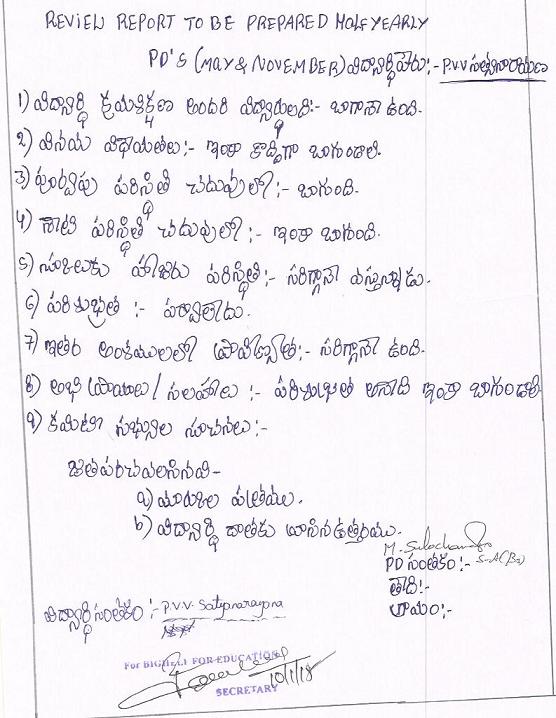 REVIEW REPORT TO BE PREPARED HALF YEARLY
PD'S (MAY & NOVEMBER) విద్యార్థి పేరు:- P.V.V సత్యనారాయణ
1) విద్యార్థి క్రమశిక్షణ అందరి విద్యార్థులది:- బాగానే ఉంది.
2) వినయ విధేయతలు:- ఇంకా కొద్దిగా బాగుండాలి.
3) పూర్వపు పరిస్థితి చదువులో:- బాగుంది.
4) నేటి పరిస్థితి చదువులో:- ఇంకా బాగుంది.
5) స్కూలుకు హాజరు పరిస్థితి:- సరిగ్గానే వస్తున్నాడు.
6) పరిశుభ్రత:- పర్వాలేదు.
7) ఇతర అంశములలో ప్రావీణ్యత:- సరిగ్గానే ఉంది.
8) అభిప్రాయాలు/సలహాలు:- పరిశుభ్రత అనేది ఇంకా బాగుండాలి.
9) కమిటీ సభ్యుల సూచనలు:-
జతపరచవలసినవి-
a) మార్కుల పత్రము.
b) విద్యార్థి దాతకు వ్రాసిన ఉత్తరము.
M. Sulochana
PD సంతకం:- S.A(Bs)
తేది:-
విద్యార్థి సంతకం:- P.V.V. Satyanarayana
For BIGHELP FOR EDUCATION
10/1/18
SECRETARY